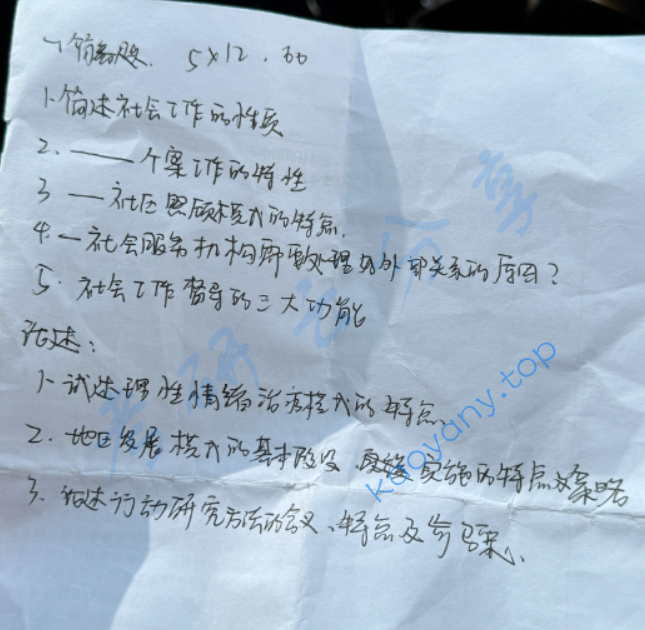 一、简答题. 5×12.60
1. 简述社会工作的性质
2. —— 个案工作的特性
3 — 社区照顾模式的特点.
4. — 社会服务机构需要处理好外部关系的原因?
5. 社会工作督导的三大功能
论述:
1. 试述理性情绪治疗模式的特点.
2. 地区发展模式的基本假设、实施的特点及策略
3. 论述行动研究方法的含义、特点及步骤.
kaoyany.top